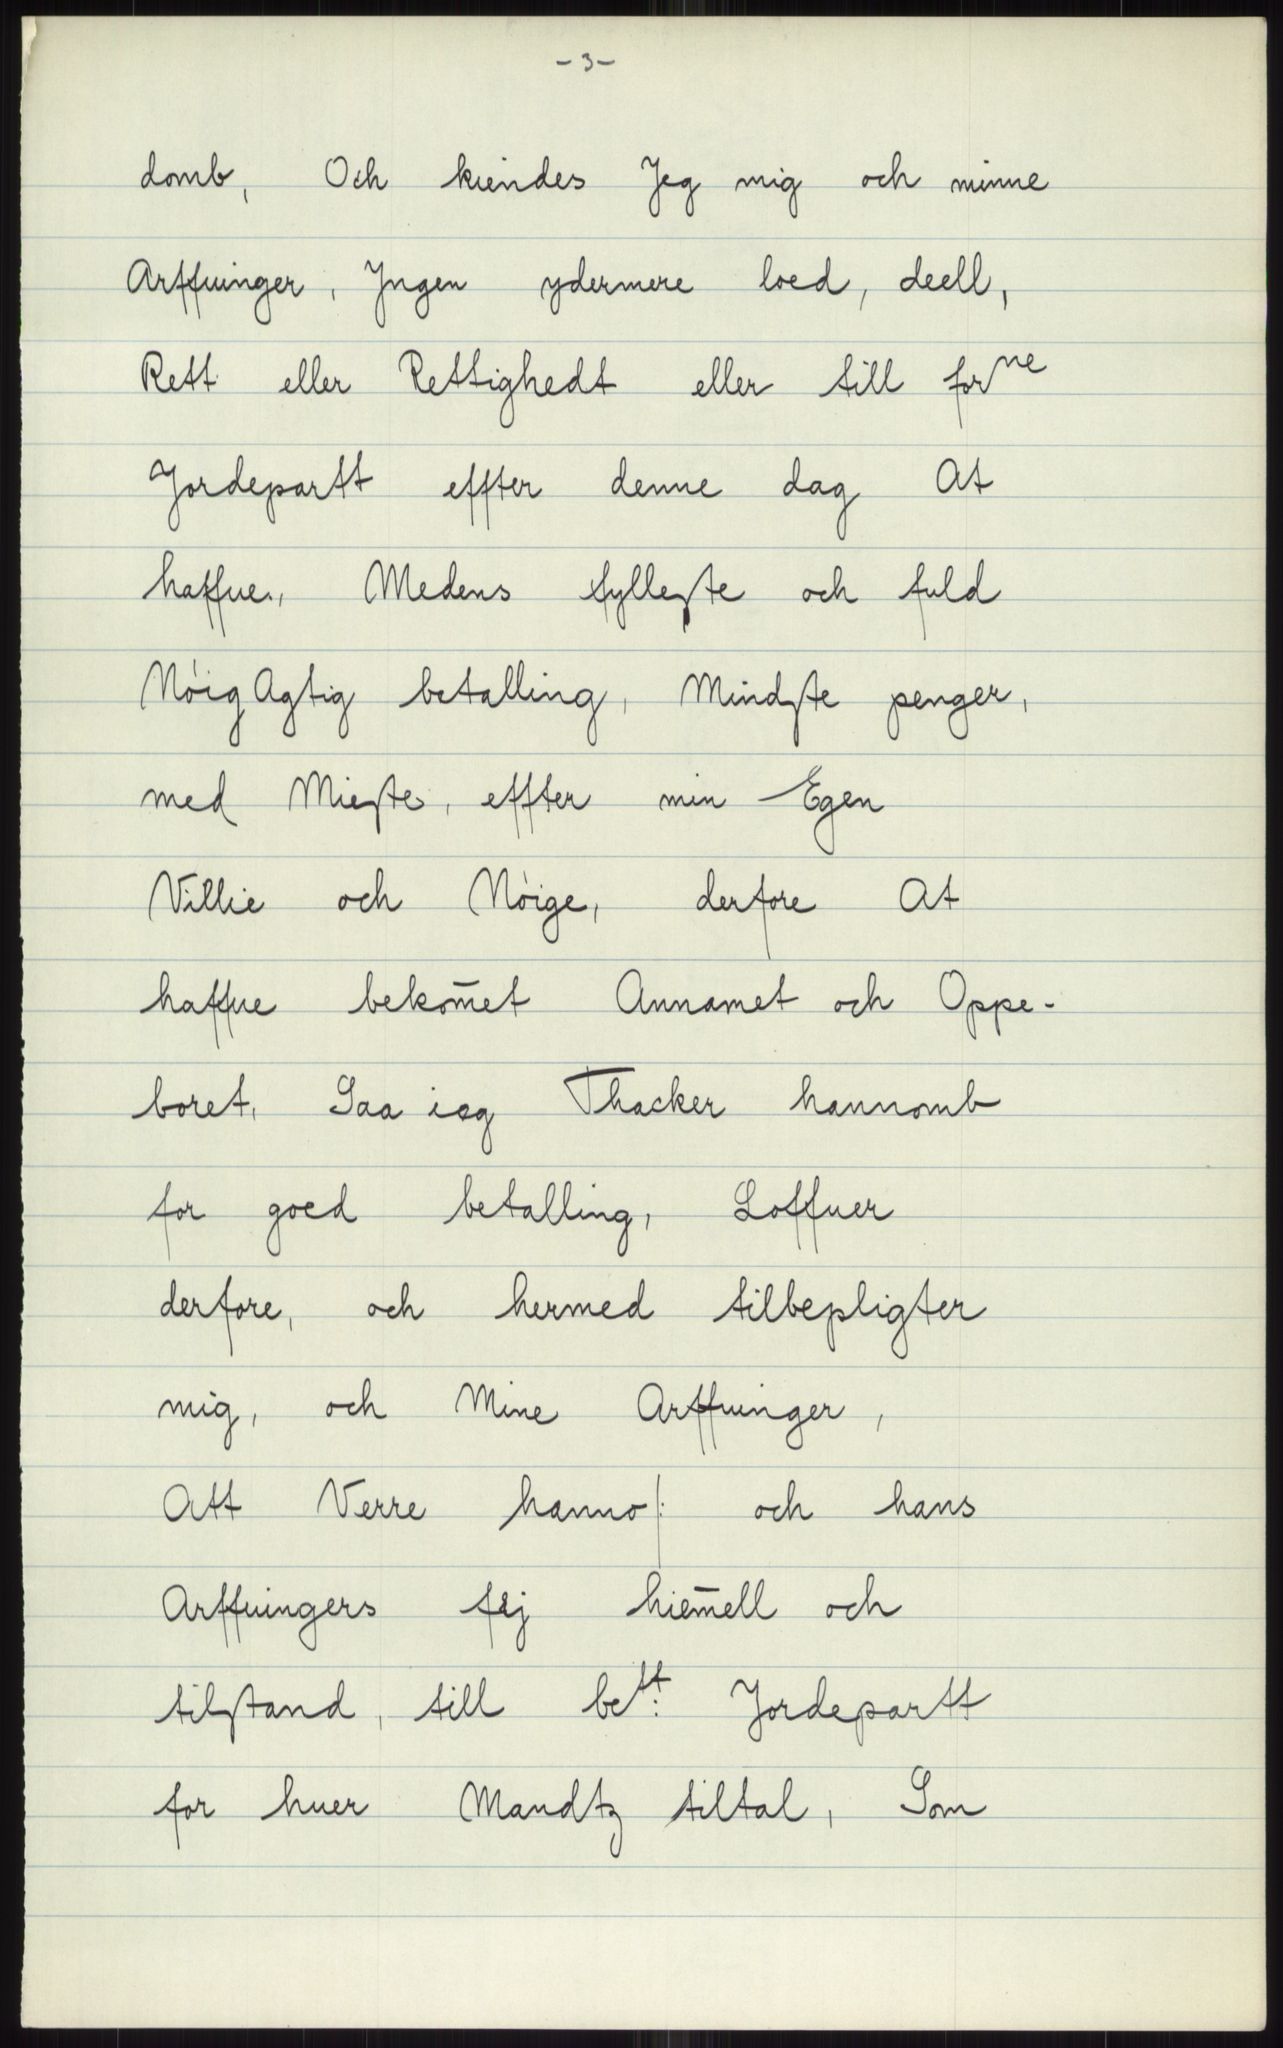 - 3 -
domb, Och kiendes Jeg mig och minne
Arffuinger, Jngen ydermere loed, deell,
Rett eller Rettighedt eller till forne
Jordepartt effter denne dag At
haffue, Medens fylleste och fuld
Nóig Agtig betalling, Mindste penger,
med Mieste, effter min Egen
Villie och Nóige, derfore At
haffue bekom̄et Annamet och Oppe-
boret, Saa ieg Thacker hannomb
for goed betalling, Loffuer
derfore, och hermed tilbepligter
mig, och Mine Arffuinger,
Att Verre hanno/: och hans
Arffuingers fri hiem̄ell och
tilstand, till bett: Jordepartt
for huer Mandtz tiltal, Som